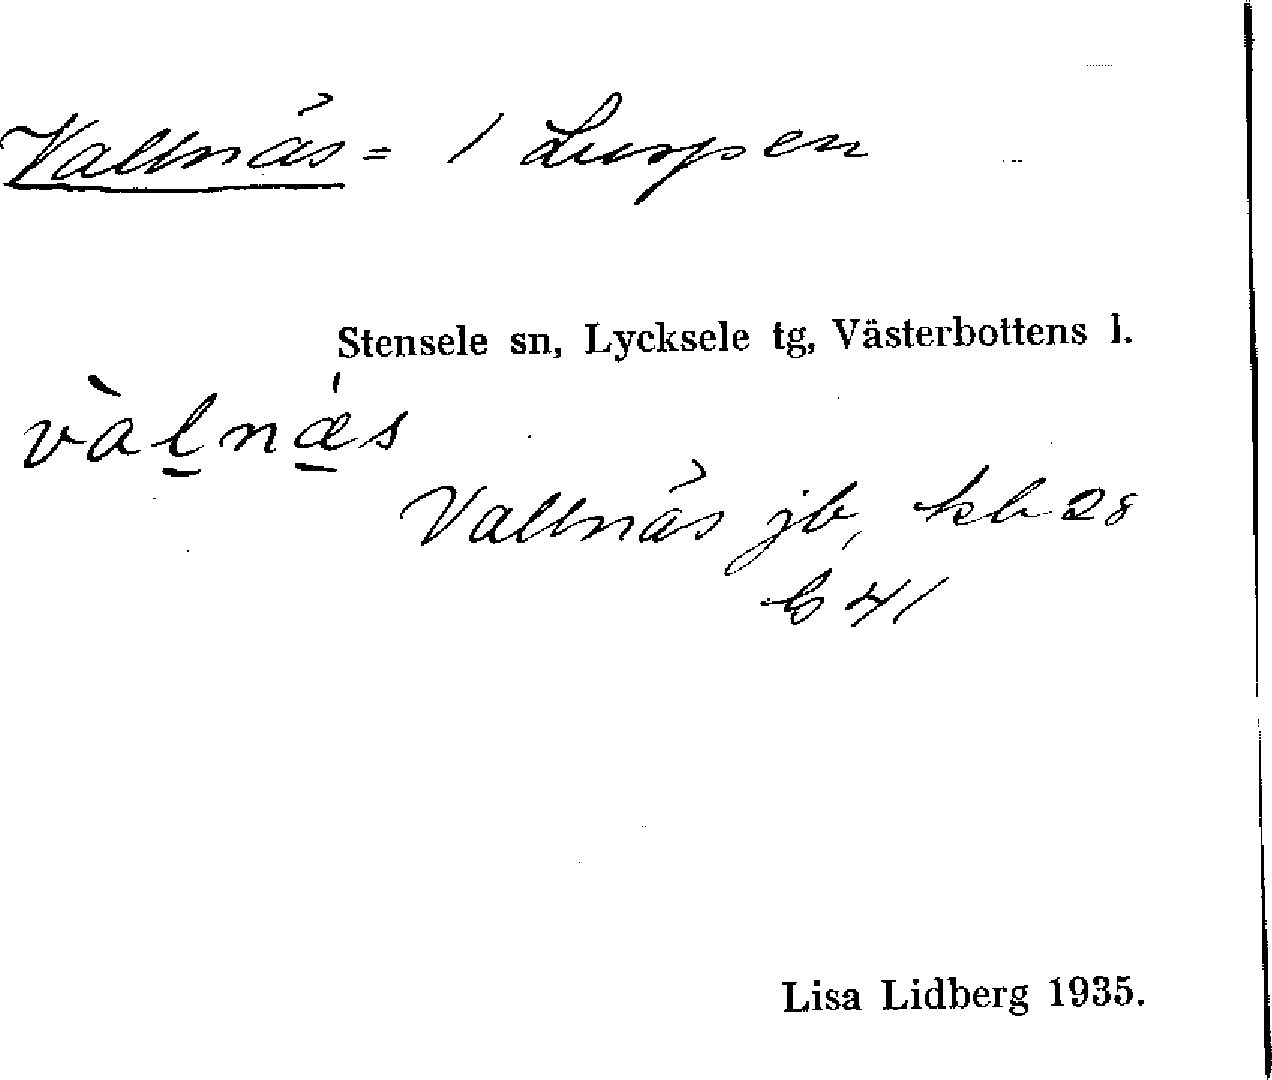 Vallnäs = 1 Luspen
Stensele sn, Lycksele tg, Västerbottens l.
vàl̠nǽ̠s
Vallnäs jb, kb 28
G 41
Lisa Lidberg 1935.